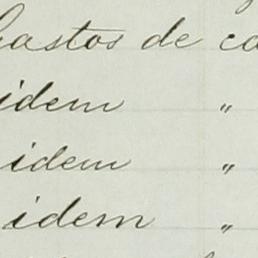 Gastos de
idem "
idem "
idem "